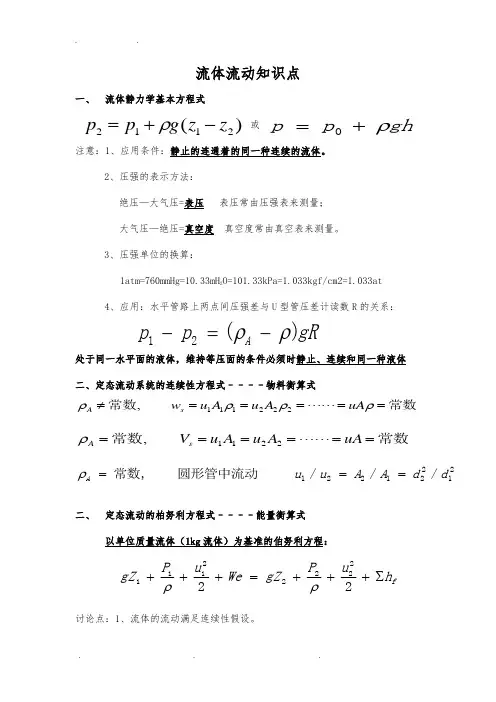 流体流动知识点
一、 流体静力学基本方程式
p₂ = p₁ + ρg(z₁ − z₂) 或 p = p₀ + ρgh
注意：1、应用条件：静止的连通着的同一种连续的流体。
2、压强的表示方法：
绝压—大气压=表压 表压常由压强表来测量；
大气压—绝压=真空度 真空度常由真空表来测量。
3、压强单位的换算：
1atm=760mmHg=10.33mH₂0=101.33kPa=1.033kgf/cm2=1.033at
4、应用：水平管路上两点间压强差与U型管压差计读数R的关系：
p₁ − p₂ = (ρ_A − ρ)gR
处于同一水平面的液体，维持等压面的条件必须时静止、连续和同一种液体
二、定态流动系统的连续性方程式－－－－物料衡算式
ρ_A ≠ 常数, w_s = u₁A₁ρ₁ = u₂A₂ρ₂ = ⋯⋯ = uAρ = 常数
ρ_A = 常数, V_s = u₁A₁ = u₂A₂ = ⋯⋯ = uA = 常数
ρ_A = 常数, 圆形管中流动 u₁ / u₂ = A₂ / A₁ = d₂² / d₁²
二、 定态流动的柏努利方程式－－－－能量衡算式
以单位质量流体（1kg流体）为基准的伯努利方程：
gZ₁ + P₁/ρ + u₁²/2 + We = gZ₂ + P₂/ρ + u₂²/2 + Σh_f
讨论点：1、流体的流动满足连续性假设。